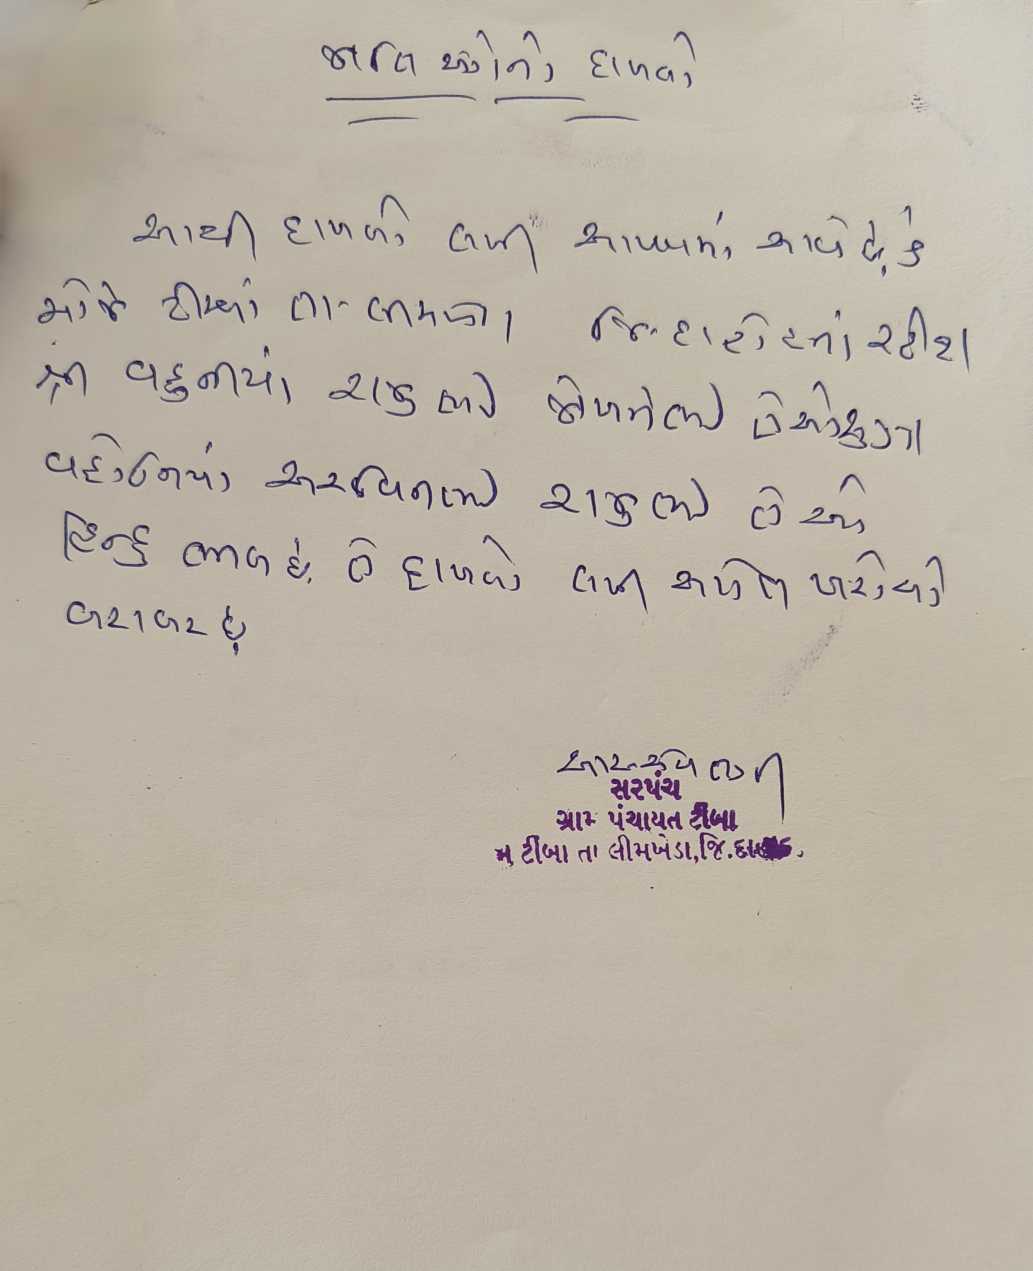 જાતિ અંગેનો દાખલો
આથી દાખલો લખી આપવામાં આવે છે, કે
મોજે ટીંબા તા. લીમખેડા જિ. દાહોદનાં રહીશ
શ્રી વહુનીયા રાજુભાઈ
વહોનિયા અરવિનભાઈ રાજુભાઈ તે ઓ
હિન્દુ ભીલ છે. તે દાખલો લખી આપેલ ખરોયો
બરાબર છે
સરપંચ
ગ્રામ પંચાયત ટીંબા
મુ ટીંબા તા લીમખેડા,જિ.દાહોદ.